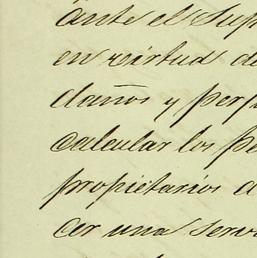 ante el Sup
en virtud de
daños y perj
calcular los pe
propietarios a
cer una serv